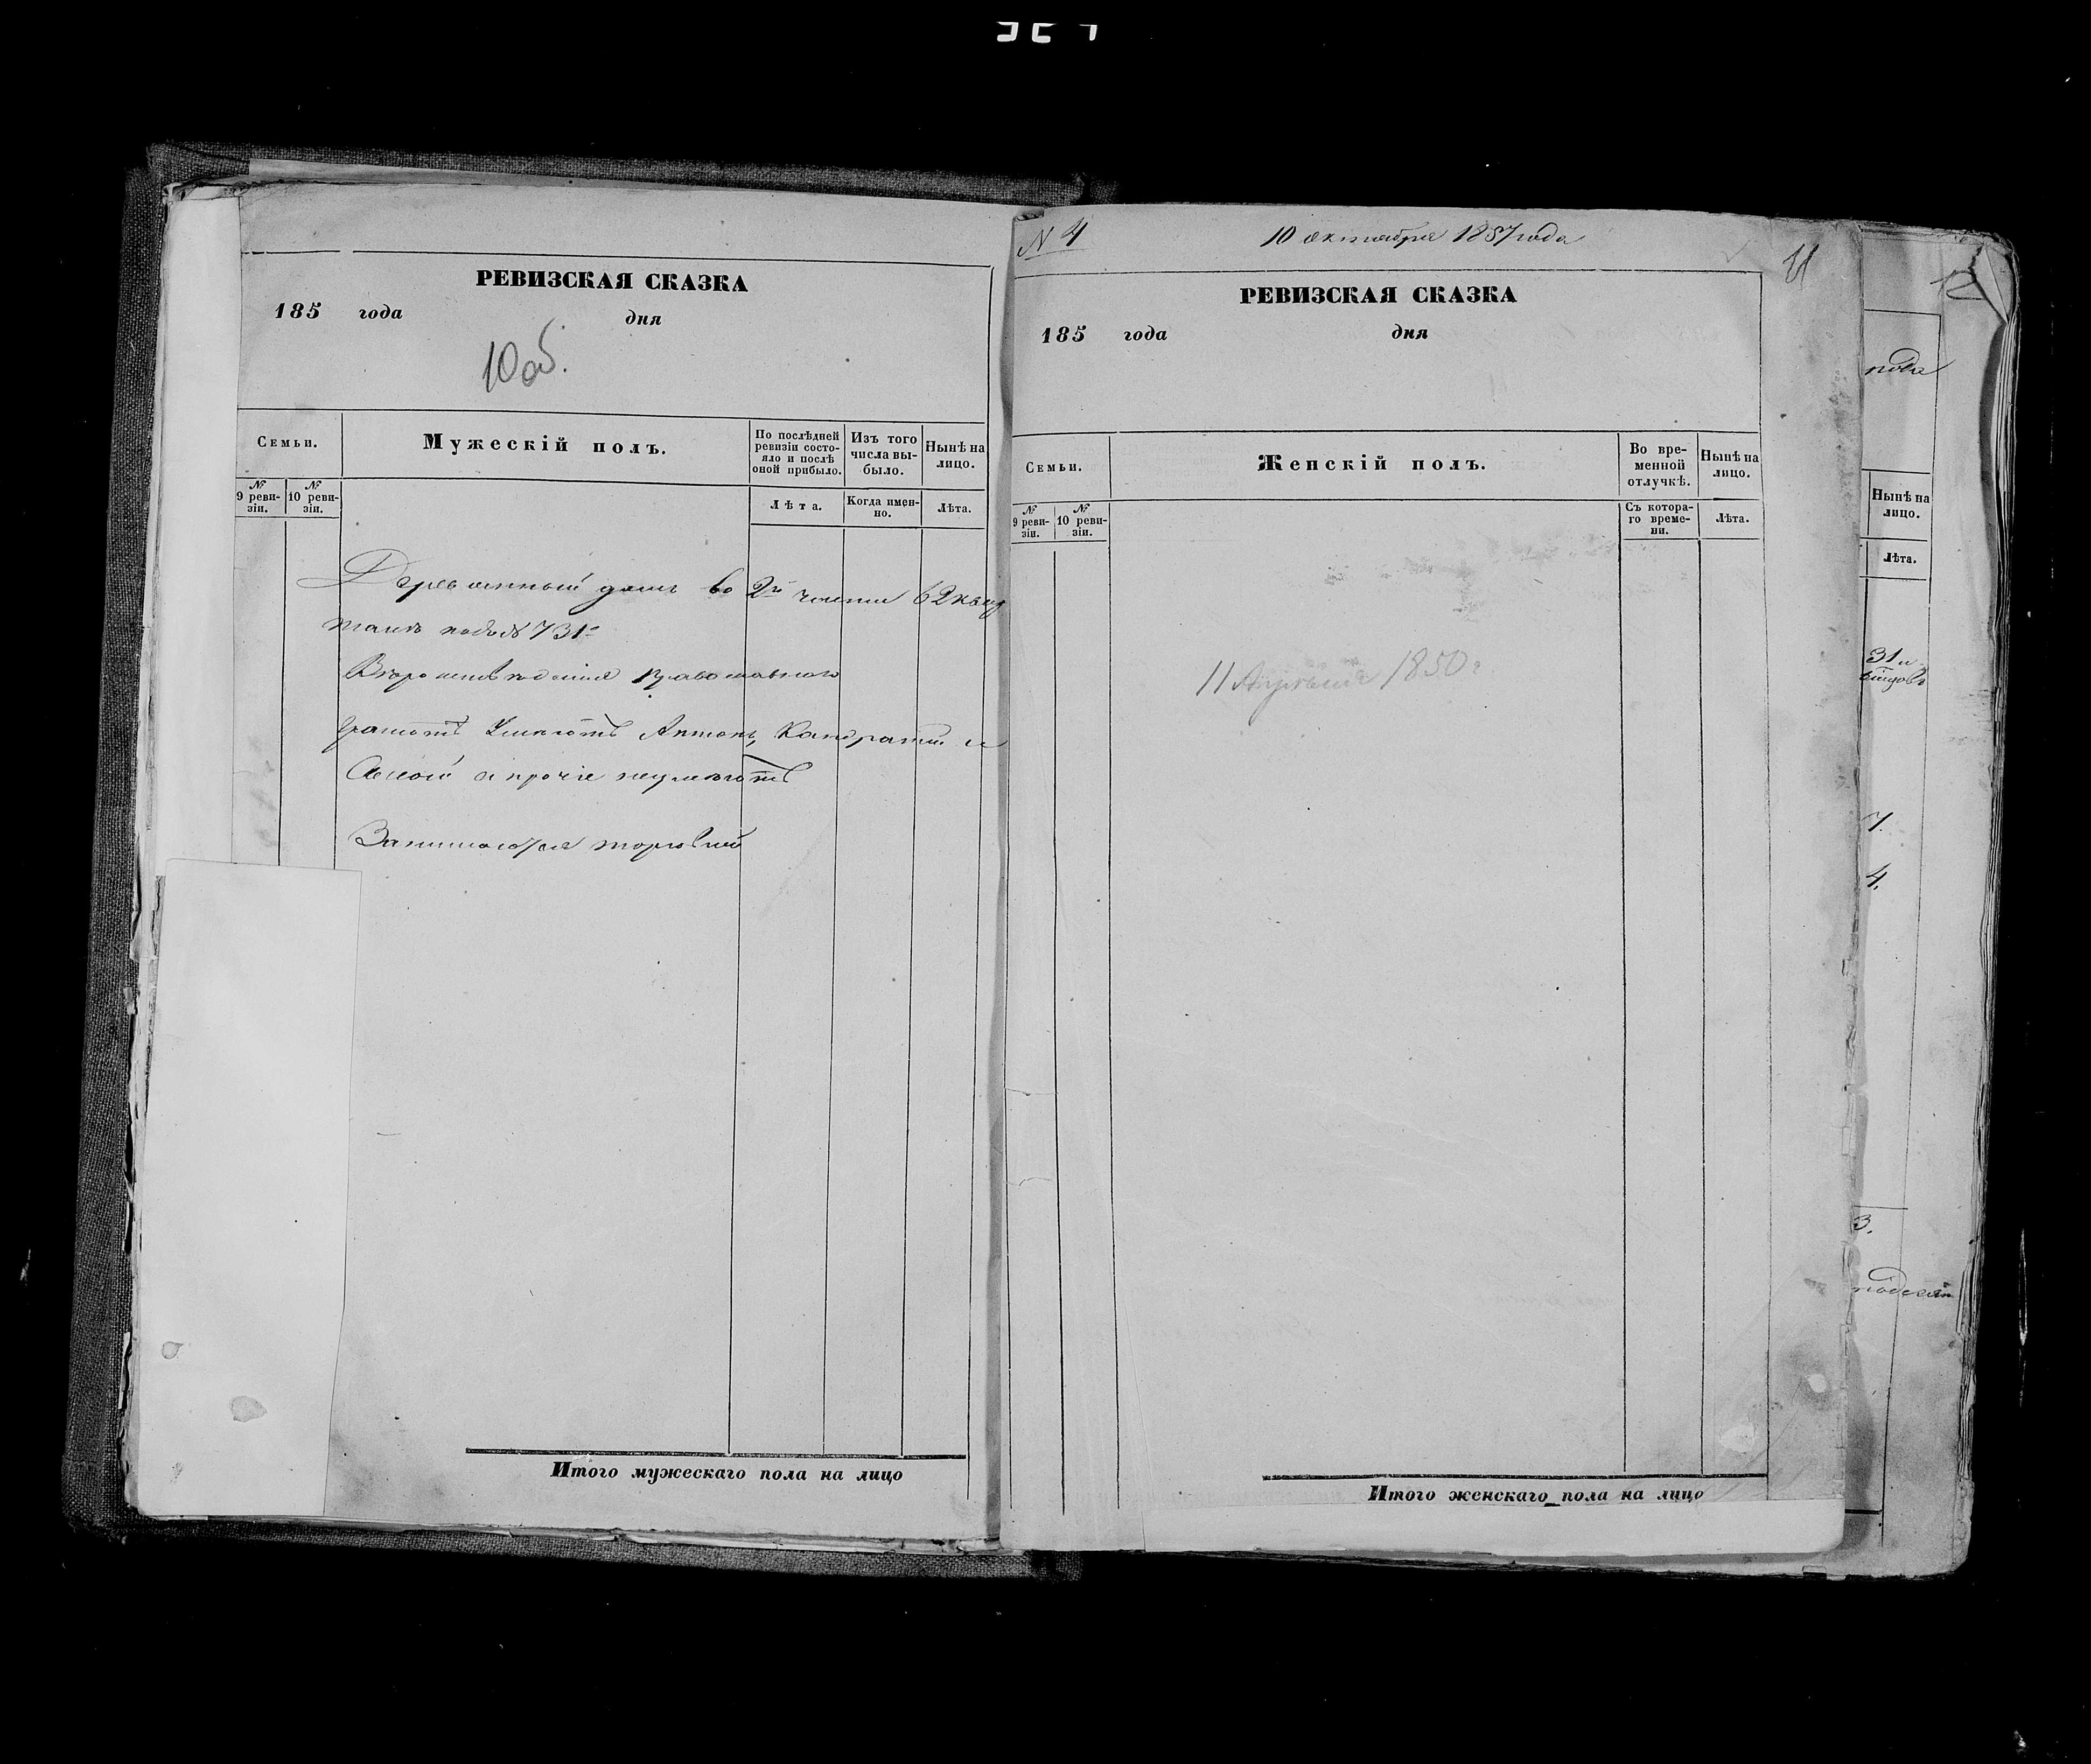 РЕВИЗСКАЯ СКАЗКА
185 года дня
10 об.
Семьи.
Мужескій полъ.
По послѣдней ревизіи состояло и послѣ оной прибыло.
Изъ того числа выбыло.
Нынѣ на лицо.
№ 9 ревизіи.
№ 10 ревизіи.
Лѣта.
Когда именно.
Лѣта.
Деревянный домъ во 2й части 62 квар
талѣ подъ № 731
Вѣроисповеданія православнаго
грамотѣ Умеютъ Антонъ, Кандратій и
Алексѣй а прочіе неумеютъ
Занимаются торговлей
Итого мужескаго пола на лицо
№ 4
10 октября 1857 года
11
РЕВИЗСКАЯ СКАЗКА
185 года дня
Семьи.
Женскій полъ.
Во временной отлучкѣ.
Нынѣ на лицо.
№ 9 ревизіи.
№ 10 ревизіи.
Съ котораго времени.
Лѣта.
11 Апрѣля 1850 г
Итого женскаго пола на лицо
12
года
Нынѣ на лицо.
Лѣта.
31
7.
4.
3.